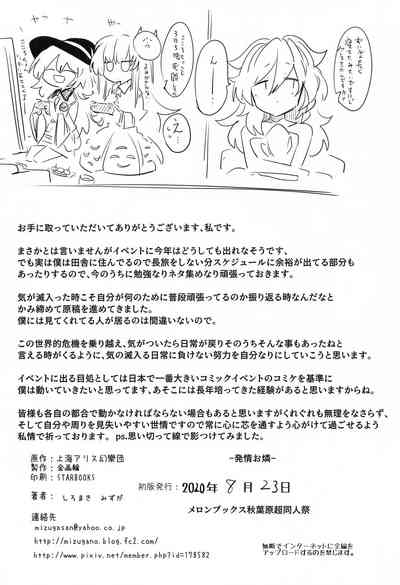 お手に取っていただいてありがとうございます、私です。
まさかとは言いませんがイベントに今年はどうしても出れなそうです、
でも実は僕は田舎に住んでるので長旅をしない分スケジュールに余裕が出てる部分も
あったりするので、今のうちに勉強なりネタ集めなり頑張っておきます。
気が滅入った時こそ自分が何のために普段頑張ってるのか振り返る時なんだなと
かみ締めて原稿を進めてきました。
僕には見てくれてる人が居るのは間違いないので。
この世界的危機を乗り越え、気がついたら日常が戻りそのうちそんな事もあったねと
言える時がくるように、気の滅入る日常に負けない努力を自分なりにしていこうと思います。
イベントに出る目処としては日本で一番大きいコミックイベントのコミケを基準に
僕は動いていきたいと思ってます、あそこには長年培ってきた経験があると思いますからね。
皆様も各自の都合で動かなければならない場合もあると思いますがくれぐれも無理をなさらず、
そして自分や周りを見失いやすい世情ですので常に心に芯を通すよう心がけて過ごせるよう
私情で祈っております。 ps.思い切って線で影つけてみました。
原作:上海アリス幻樂団
製作:金晶輪
印刷:STARBOOKS
著者:しろまき みずが
連絡先
mizugasan@yahoo.co.jp
http://mizugano.blog.fc2.com/
http://www.pixiv.net/member.php?id=178582
-発情お燐-
初版発行:2020年 8月 23日
メロンブックス秋葉原超同人祭
無断でインターネットに全編を
アップロードするのを禁じます。